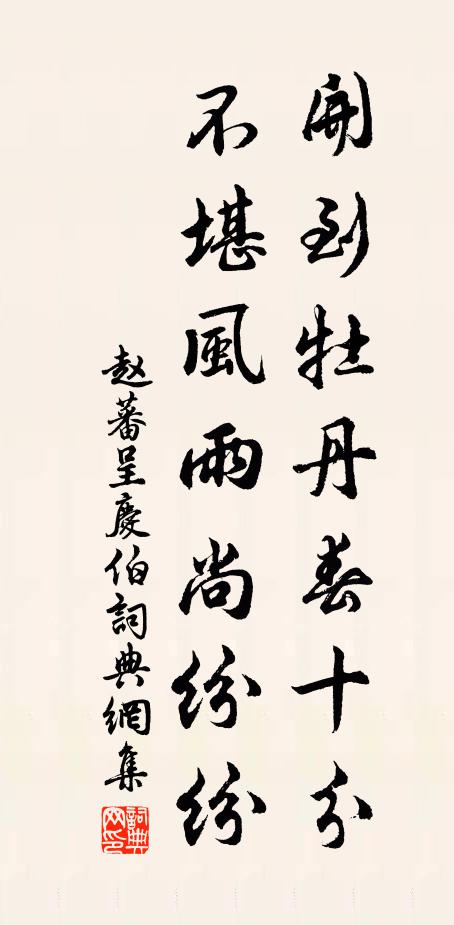 開到牡丹春十分
不堪風雨尚紛紛
趙蕃呈慶伯詞典網集
詞典網印